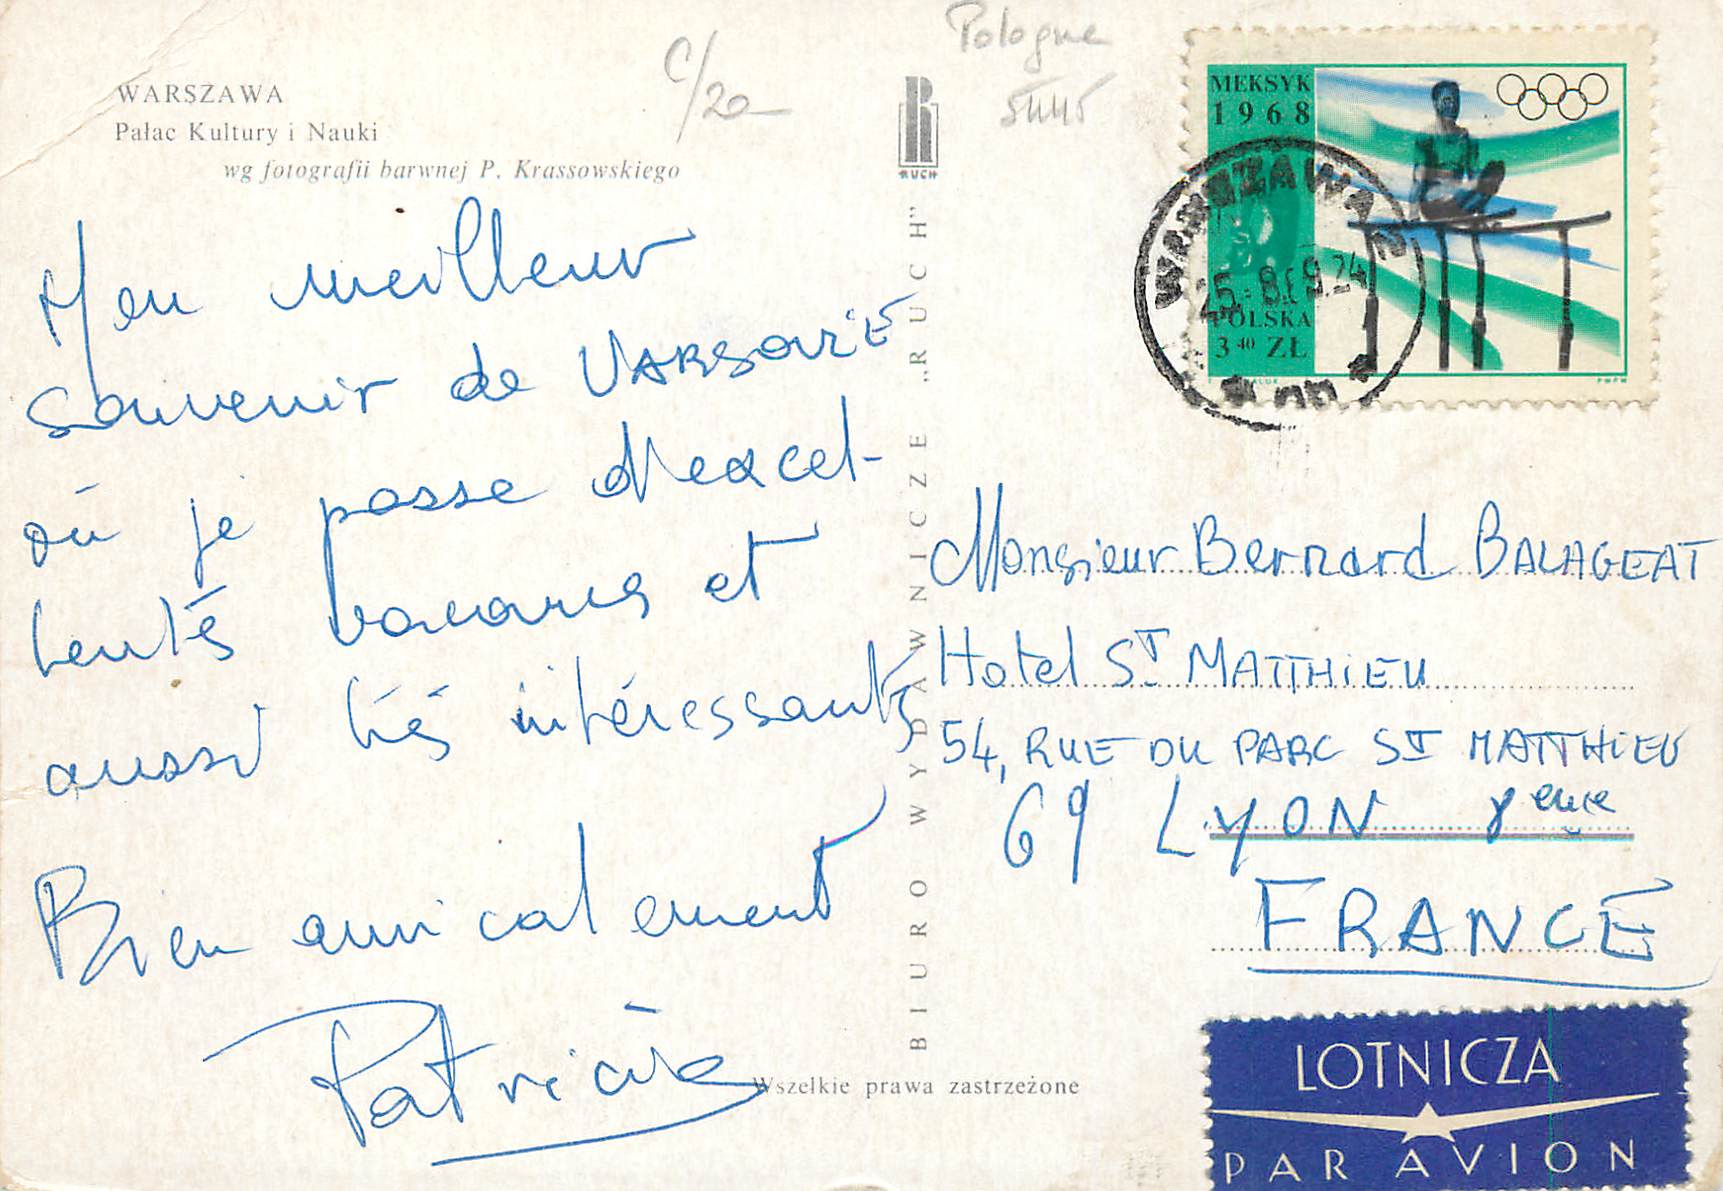 WARSZAWA
Pałac Kultury i Nauki
wg fotografii barwnej P. Krassowskiego
C/20
Pologne
RUCH
MEKSYK
1968
POLSKA
3 40 ZŁ
PWPW
WARSZAWA 2
25.-8.69.24
Mon meilleur
souvenir de VARSOVIE
où je passe d'excel-
lentes vacances et
aussi très intéressants
Bien amicalement
Patricia
BIURO WYDAWNICZE „RUCH”
Monsieur Bernard BALAGEAT
Hotel ST MATTHIEU
54, RUE DU PARC ST MATTHIEU
69 LYON 8eme
FRANCE
Wszelkie prawa zastrzeżone
LOTNICZA
PAR AVION